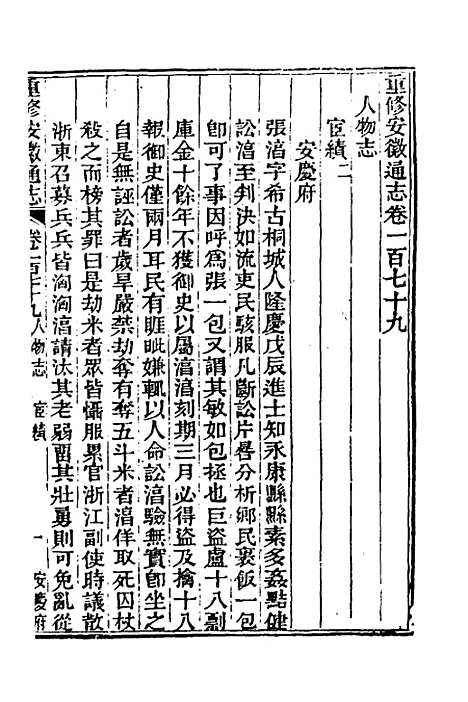 重修安徽通志卷一百七十九
人物志
宦績二
安慶府
張淓字希古桐城人隆慶戊辰進士知永康縣縣素多姦黠健
訟淓至判決如流吏民駭服凡斷訟片晷分析鄉民裹飯一包
卽可了事因呼爲張一包又謂其敏如包拯也巨盜盧十八剽
庫金十餘年不獲御史以屬淓淓刻期三月必得盜及擒十八
報御史僅兩月耳民有睚眦嫌輒以人命訟淓驗無實卽坐之
自是無誣訟者歲旱嚴禁劫奪有奪五斗米者淓佯取死囚杖
殺之而榜其罪曰是劫米者眾皆懾服累官浙江副使時議散
浙東召募兵兵皆洶洶淓請汰其老弱留其壯勇則可免亂從
重修安徽通志 卷一百七十九 人物志 宦績 一 安慶府